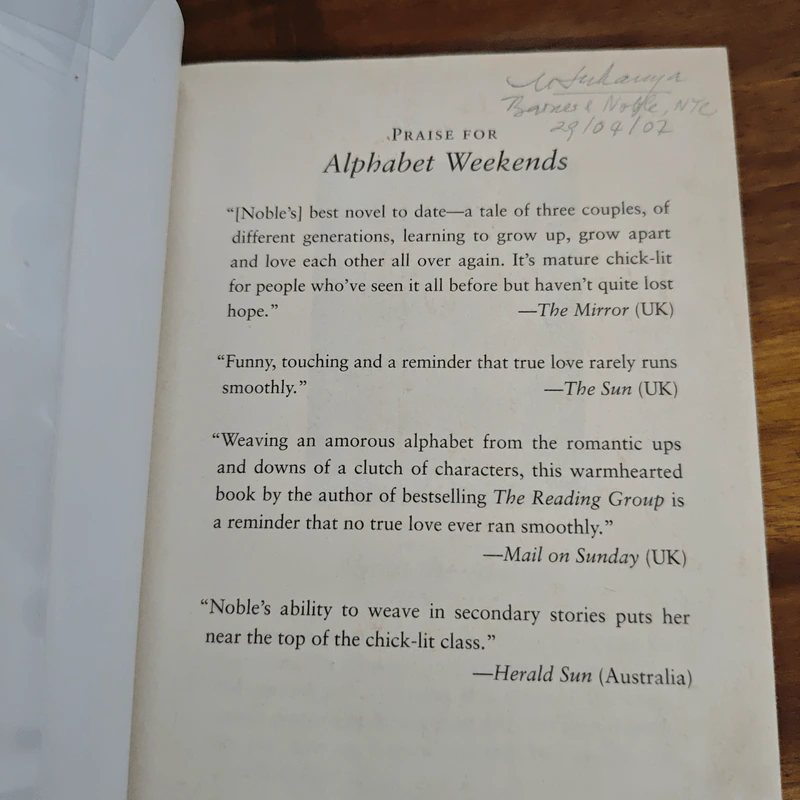 Barnes & Noble, NYC
29/04/07
PRAISE FOR
Alphabet Weekends
“[Noble’s] best novel to date—a tale of three couples, of
different generations, learning to grow up, grow apart
and love each other all over again. It’s mature chick-lit
for people who’ve seen it all before but haven’t quite lost
hope.” —The Mirror (UK)
“Funny, touching and a reminder that true love rarely runs
smoothly.” —The Sun (UK)
“Weaving an amorous alphabet from the romantic ups
and downs of a clutch of characters, this warmhearted
book by the author of bestselling The Reading Group is
a reminder that no true love ever ran smoothly.”
—Mail on Sunday (UK)
“Noble’s ability to weave in secondary stories puts her
near the top of the chick-lit class.”
—Herald Sun (Australia)